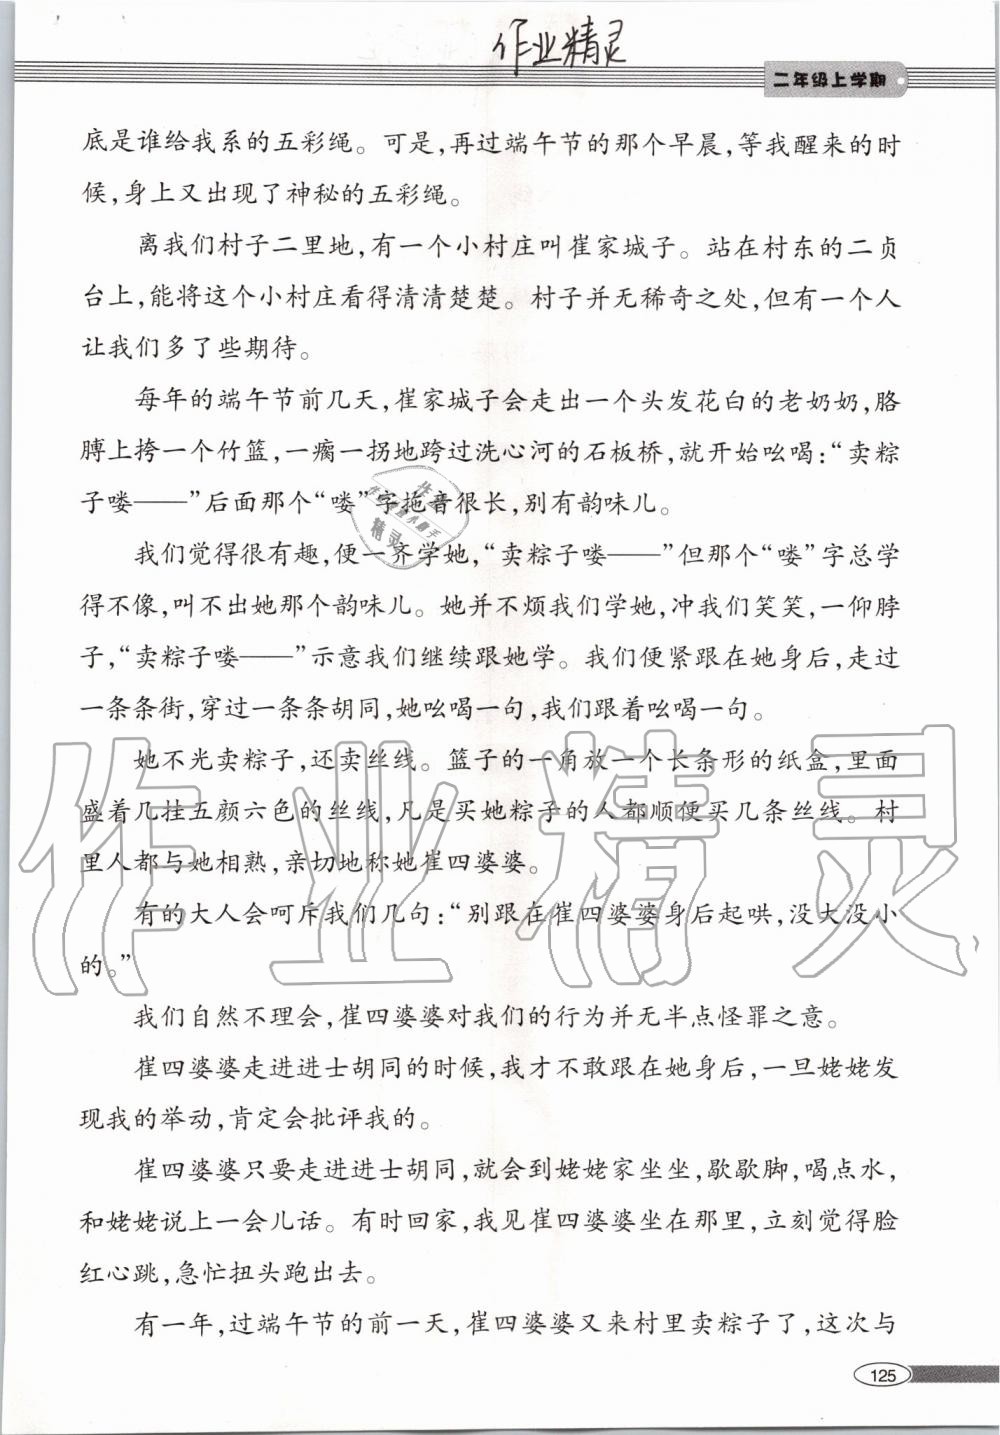 作业精灵
二年级上学期
底是谁给我系的五彩绳。可是,再过端午节的那个早晨,等我醒来的时
候,身上又出现了神秘的五彩绳。
离我们村子二里地,有一个小村庄叫崔家城子。站在村东的二贞
台上,能将这个小村庄看得清清楚楚。村子并无稀奇之处,但有一个人
让我们多了些期待。
每年的端午节前几天,崔家城子会走出一个头发花白的老奶奶,胳
膊上挎一个竹篮,一瘸一拐地跨过洗心河的石板桥,就开始吆喝:“卖粽
子喽——”后面那个“喽”字拖音很长,别有韵味儿。
我们觉得很有趣,便一齐学她,“卖粽子喽——”但那个“喽”字总学
得不像,叫不出她那个韵味儿。她并不烦我们学她,冲我们笑笑,一仰脖
子,“卖粽子喽——”示意我们继续跟她学。我们便紧跟在她身后,走过
一条条街,穿过一条条胡同,她吆喝一句,我们跟着吆喝一句。
她不光卖粽子,还卖丝线。篮子的一角放一个长条形的纸盒,里面
盛着几挂五颜六色的丝线,凡是买她粽子的人都顺便买几条丝线。村
里人都与她相熟,亲切地称她崔四婆婆。
有的大人会呵斥我们几句:“别跟在崔四婆婆身后起哄,没大没小
的。”
我们自然不理会,崔四婆婆对我们的行为并无半点怪罪之意。
崔四婆婆走进进士胡同的时候,我才不敢跟在她身后,一旦姥姥发
现我的举动,肯定会批评我的。
崔四婆婆只要走进进士胡同,就会到姥姥家坐坐,歇歇脚,喝点水,
和姥姥说上一会儿话。有时回家,我见崔四婆婆坐在那里,立刻觉得脸
红心跳,急忙扭头跑出去。
有一年,过端午节的前一天,崔四婆婆又来村里卖粽子了,这次与
125
作业精灵